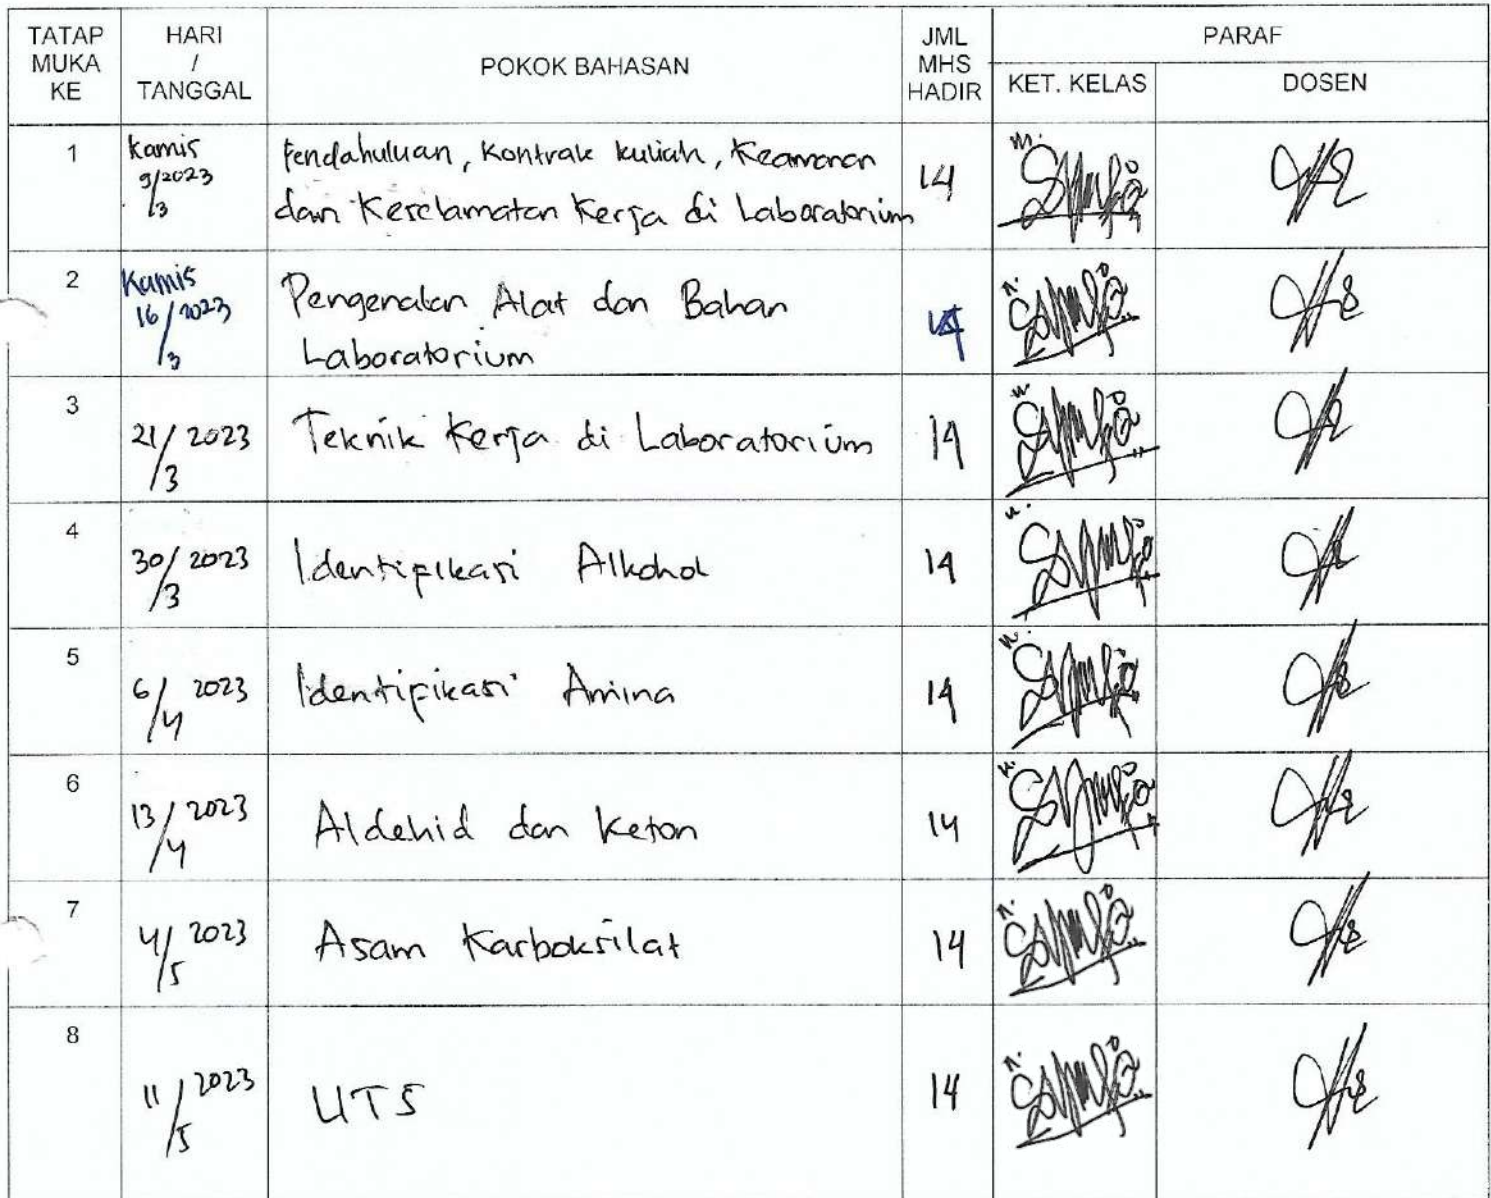 TATAP MUKA KE
HARI / TANGGAL
POKOK BAHASAN
JML MHS HADIR
PARAF
KET. KELAS
DOSEN
1
Kamis
9/2023
/3
Pendahuluan, Kontrak kuliah, Keamanan
dan Keselamatan Kerja di Laboratorium
14
2
Kamis
16/2023
/3
Pengenalan Alat dan Bahan
Laboratorium
14
3
21/2023
/3
Teknik Kerja di Laboratorium
14
4
30/2023
/3
Identifikasi Alkohol
14
5
6/2023
/4
Identifikasi Amina
14
6
13/2023
/4
Aldehid dan Keton
14
7
4/2023
/5
Asam Karboksilat
14
8
11/2023
/5
UTS
14